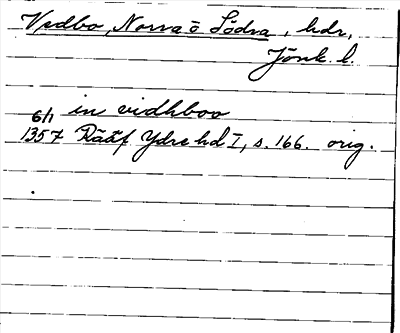 Vedbo, Norra o Södra, hdr,
Jönk. l.
6/1 in vidhboo
1357 Rääf Ydre hd I, s. 166. orig.